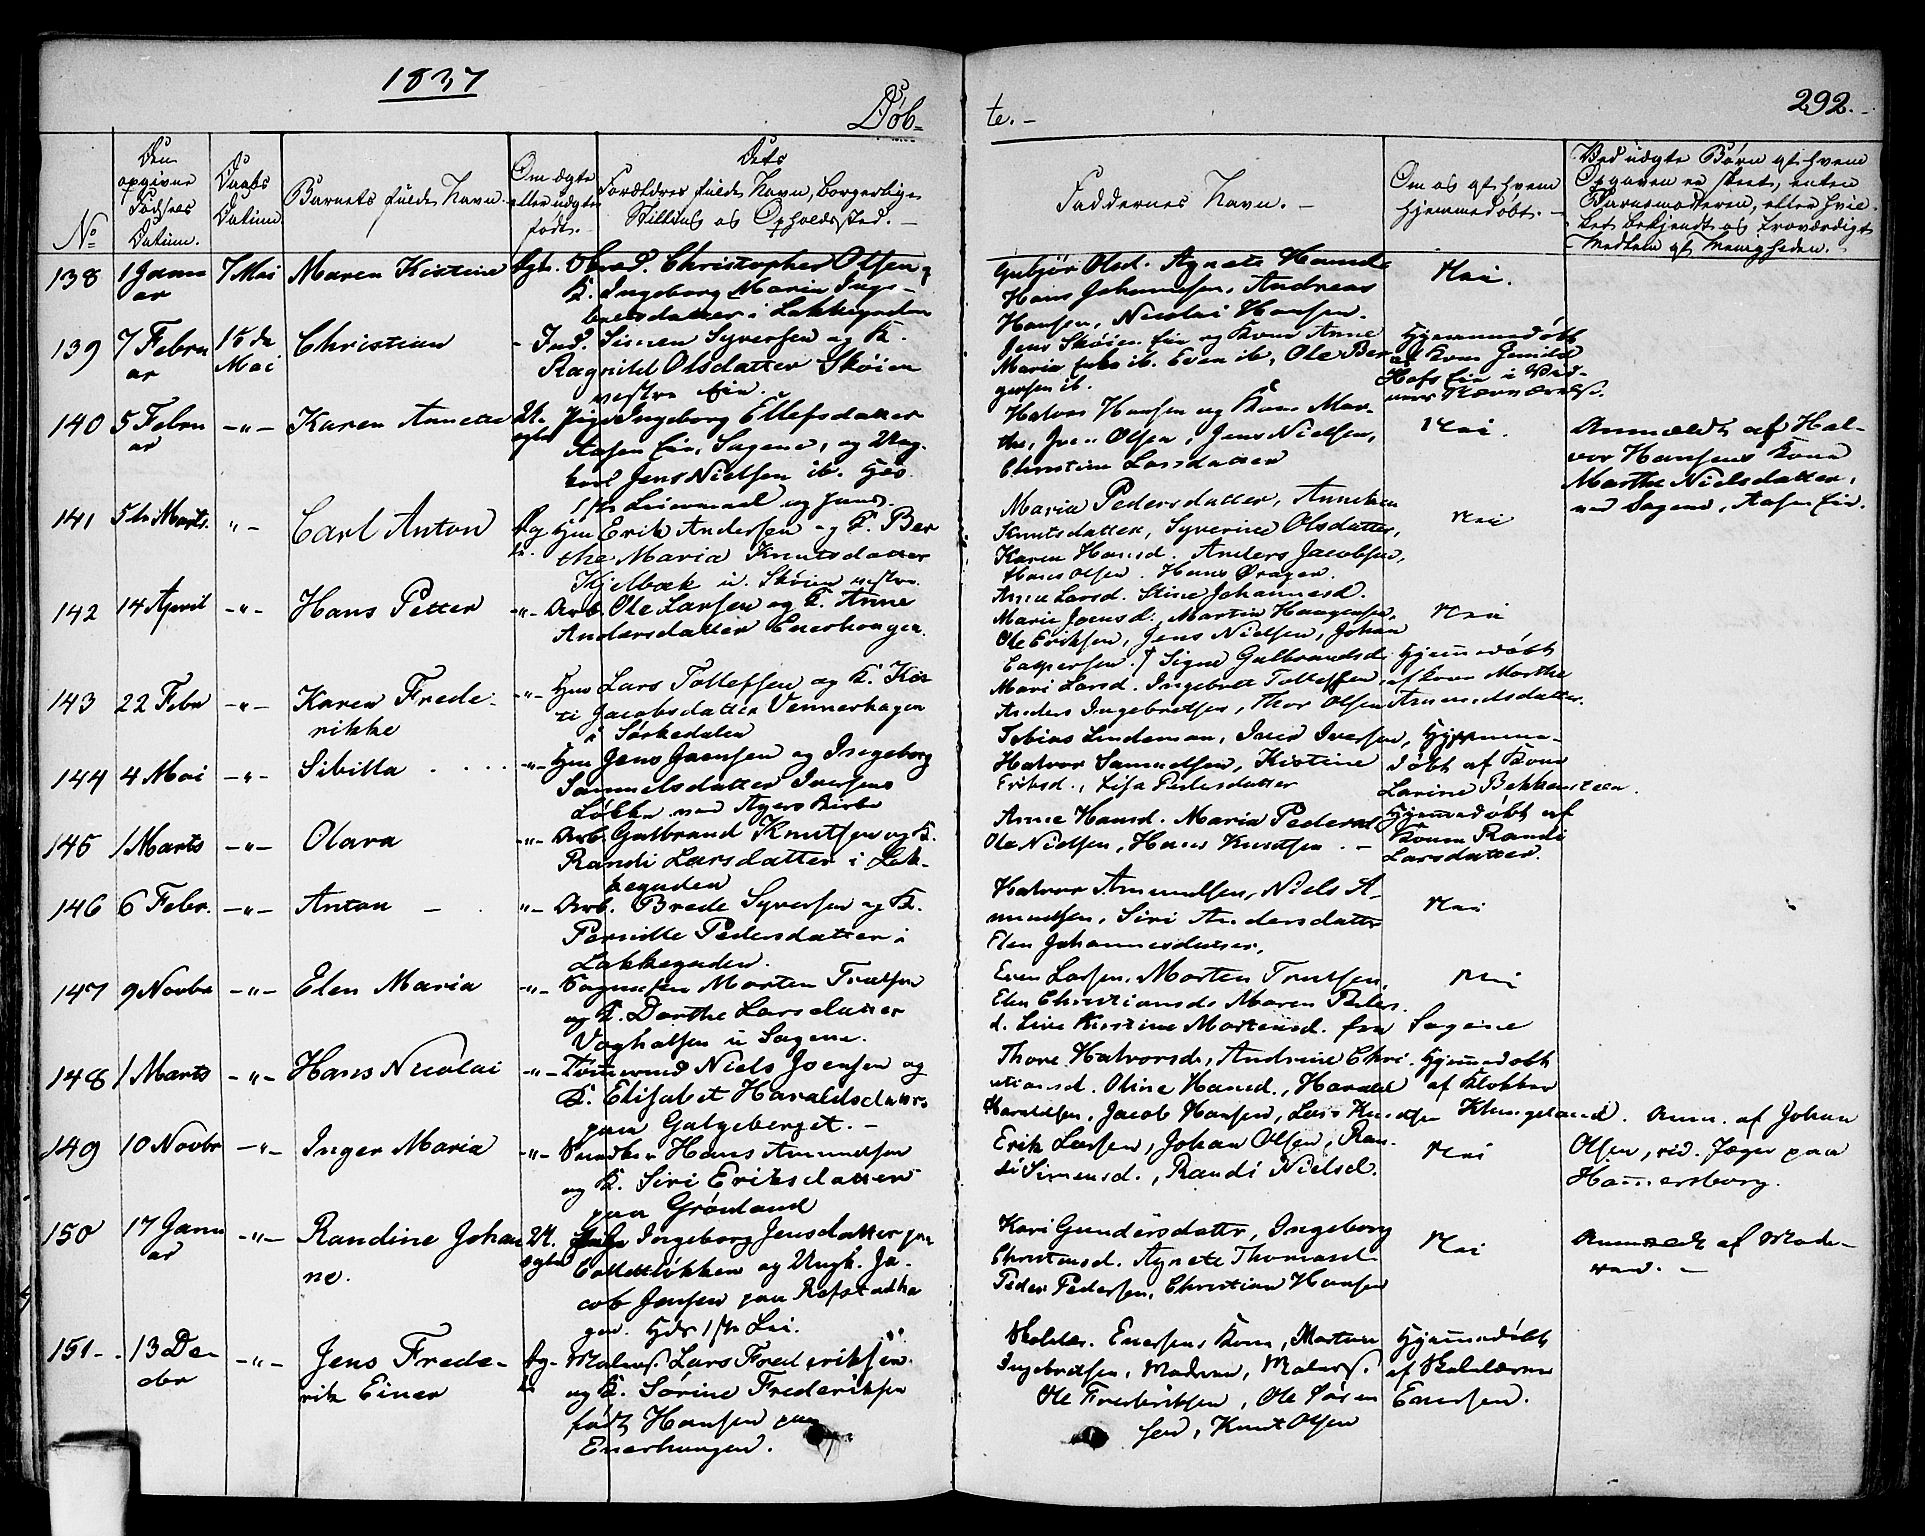 1837
Døb-
te.-
292.-
No
Den opgivne Fødsels Datum.
Daabs Datum
Barnets fulde Navn
Om ægte eller uægte født.-
Dets Forældres fulde Navn, borgerlige Stilling og Opholdssted.-
Faddernes Navn.-
Om og af hvem hjemmedøbt.-
Ved uægte Børn af hvem Opgaven er skeet, enten Barnemoderen, eller hvilket bekjendt og troværdigt Medlem af Menigheden.
138 1 Januar 7 Mai Maren Kistine Ægte. Christopher Olsen,
K. Ingeborg Maria Inge-
bretsdatter i Lakkegaden
Gubjør Olsd. Agnete Hansd.
Hans Johannesen, Andreas
Hansen, Nicolai Hansen.
Nei.
139 7 Februar 15de Mai Christian - Ind. Simen Syversen og K.
Ragnild Olsdatter Skøien
vestre Eie.
Jens Skøien Eie og Kone Anne
Maria ib. Even ib, Ole Ber
gersen ib.
Hjemmedøbt
af Kone Gunild
Hafs Eie i
140 5 Februar -"- Karen Annette U-
ægte Pige Ingeborg Ellefsdatter
Aasen Eie, Sagene, og Ung-
karl Jens Nielsen ib. Hds
1ste Leiermaal og hans.
Halvor Hansen og Kone Mar-
the, Joen Olsen, Jens Nielsen,
Christine Larsdatter
Nei.
Anmældt af Hal-
vor Hansens Kone
Marthe Nielsdatter,
ved Sagene, Aasen Eie.
141 5te Marts. "- Carl Anton Æg
te. Hjm Erik Andersen og K. Ber
the Maria Knutsdatter
Kjelbæk u. Skøien vestre.
Maria Pedersdatter, Anneken
Knutsdatter, Syverine Olsdatter,
Karen Hansd. Anders Jacobsen,
Hans Olsen. Hans Øragen.
Nei
142 14 April -"- Hans Petter -"- Arb. Ole Larsen og K. Anne
Andersdatter Enerhougen.
Anne Larsd. Stine Johannesd.
Marie Joensd. Martin Haagensen,
Ole Eriksen, Jens Nielsen, Johan
Caspersen.
Nei
143 22 Febr -"- Karen Frede-
rikke -"- Hjm Lars Tollefsen og K. Kis
ti Jacobsdatter Vennerhagen
i Sørkedalen
Signe Gulbrandsd.
Mari Larsd. Ingebret Tollefsen,
Anders Ingebretsen, Thor Olsen
Hjemmedøbt
af Kone Marthe
Amundsdatter.
144 4 Mai -"- Sibilla -"- Hjm Jens Joensen og Ingeborg
Samuelsdatter Iversens
Løkke ved Agers Kirke
Tobias Lindeman, Iver Iversen,
Halvor Samuelsen, Kistine
Eriksd., Lisa Pedersdatter
Hjemme-
døbt af Kone
Larine Bekkensteen.
145 1 Marts -"- Olara -"- Arb Gulbrand Knutsen og K.
Randi Larsdatter i Lak-
kegaden
Anne Hansd. Maria Pedersd
Ole Nielsen, Hans Knutsen.-
Hjemmedøbt af
Konen Randi
Larsdatter.
146 6 Febr. -"- Anton - -"- Arb. Brede Syversen og K.
Pernille Pedersdatter i
Lakkegaden.
Halvor Amundsen, Niels A-
mundsen, Siri Andersdatter
Elen Johannesdatter,
Nei
147 9 Novbr -"- Elen Maria -"- Morten Truelsen
og K. Dorthe Larsdatter
Voghalsen u Sagene.
Even Larsen, Morten Trulsen,
Elen Christiansd. Maren Peders
d. Line Kirstine Mortensd. fra Sagene
Nei
148 1 Marts -"- Hans Nicolai -"- Tømmermd Niels Joensen og
K. Elisabet Haraldsdatter
paa Galgeberget.-
Thore Halvorsd., Andrine Chri-
stiansd. Oline Hansd., Harald
Haraldsen, Jacob Hansen, Lars Knudsen
Hjemmedøbt
af Klokker
Klungeland.
149 10 Novbr -"- Inger Maria -"- Hans Amundsen
og K. Siri Eriksdatter
paa Grønland
Erik Larsen, Johan Olsen, Ran-
di Simensd., Randi Nielsd.
Nei
Anm. af Johan
Olsen, rid. Jæger paa
Hammersborg.
150 17 Januar -"- Randine Johan
ne. U-
ægte Pige Ingeborg Jensdatter paa
Collettløkken og Ungk. Ja-
cob Jensen paa Refstadha
gen. Hds 1ste Lei.
Kari Gundersdattr, Ingeborg
Christensd. Agnete Thomasd
Peder Pedersen, Christian Hansen
Nei
Anmeldt af Mode-
ren.-
151-. 13 De-
cbr -"- Jens Frede-
rik Einer Æg-
te Malers. Lars Frederiksen.
og K. Sørine Frederiksen
født Hansen paa
Enerhougen.
Skolelær. Enersens Kone, Marthe
Ingebretsen, Madame, Malers.
Ole Frederiksen, Ole Søren
sen, Knut Olsen
Hjemmedøbt
af Skolelærer
Enersen.